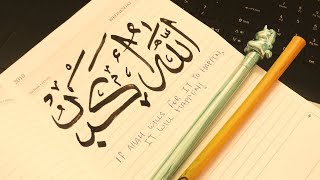 الله أكبر
IF ALLAH WILLS FOR IT TO HAPPEN,
IT WILL HAPPEN